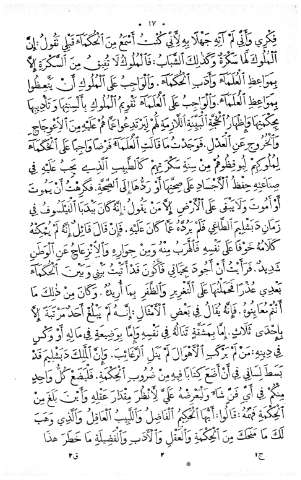 • ١٧ •
فِكْرِي وَأَنِّي لَمْ آتِهِ جَهْلًا بِهِ لِأَنِّي كُنْتُ أَسْمَعُ مِنَ الْحُكَمَاءِ قَبْلِي تَقُولُ: إِنَّ
الْمُلُوكَ لَهَا سَكْرَةٌ وَكَذٰلِكَ الشَّبَابُ. فَالْمُلُوكُ لَا تُفِيقُ مِنَ السَّكْرَةِ إِلَّا
بِمَوَاعِظِ الْعُلَمَاءِ وَأَدَبِ الْحُكَمَاءِ. وَالْوَاجِبُ عَلَى الْمُلُوكِ أَنْ يَتَّعِظُوا
بِمَوَاعِظِ الْعُلَمَاءِ. وَالْوَاجِبُ عَلَى الْعُلَمَاءِ تَقْوِيمُ الْمُلُوكِ بِأَلْسِنَتِهَا وَتَأْدِيبُهَا
بِحِكْمَتِهَا وَإِظْهَارُ الْحُجَّةِ الْبَيِّنَةِ اللَّازِمَةِ لَهُمْ لِيَرْتَدِعُوا عَمَّا هُمْ عَلَيْهِ مِنَ الِاعْوِجَاجِ
وَالْخُرُوجِ عَنِ الْعَدْلِ. فَوَجَدْتُ مَا قَالَتِ الْعُلَمَاءُ فَرْضًا وَاجِبًا عَلَى الْحُكَمَاءِ
لِمُلُوكِهِمْ لِيُوقِظُوهُمْ مِنْ سِنَةِ سَكْرَتِهِمْ كَالطَّبِيبِ الَّذِي يَجِبُ عَلَيْهِ فِي
صِنَاعَتِهِ حِفْظُ الْأَجْسَادِ عَلَى صِحَّتِهَا أَوْ رَدُّهَا إِلَى الصِّحَّةِ. فَكَرِهْتُ أَنْ يَمُوتَ
أَوْ أَمُوتَ وَلَا يَبْقَى عَلَى الْأَرْضِ إِلَّا مَنْ يَقُولُ: إِنَّهُ كَانَ بَيْدَبَا الْفَيْلَسُوفُ فِي
زَمَانِ دَبْشَلِيمَ الطَّاغِي فَلَمْ يَرُدَّهُ عَمَّا كَانَ عَلَيْهِ. فَإِنْ قَالَ قَائِلٌ: إِنَّهُ لَمْ يُمْكِنْهُ
كَلَامُهُ خَوْفًا عَلَى نَفْسِهِ فَالْهَرَبُ مِنْهُ وَمِنْ جِوَارِهِ وَالِانْزِعَاجُ عَنِ الْوَطَنِ
شَدِيدٌ. فَرَأَيْتُ أَنْ أَجُودَ بِحَيَاتِي فَأَكُونَ قَدْ أَتَيْتُ فِيمَا بَيْنِي وَبَيْنَ الْحُكَمَاءِ
بَعْدِي عُذْرًا فَحَمَلْتُهَا عَلَى التَّغْرِيرِ وَالظَّفَرِ بِمَا أُرِيدُهُ. وَكَانَ مِنْ ذٰلِكَ مَا
أَنْتُمْ مُعَايِنُوهُ. فَإِنَّهُ يُقَالُ فِي بَعْضِ الْأَمْثَالِ: إِنَّهُ لَمْ يَبْلُغْ أَحَدٌ مَرْتَبَةً إِلَّا
بِإِحْدَى ثَلَاثٍ: إِمَّا بِمَشَقَّةٍ تَنَالُهُ فِي نَفْسِهِ وَإِمَّا بِوَضِيعَةٍ فِي مَالِهِ أَوْ وَكْسٍ
فِي دِينِهِ. مَنْ لَمْ يَرْكَبِ الْأَهْوَالَ لَمْ يَنَلِ الرَّغَائِبَ. وَإِنَّ الْمَلِكَ دَبْشَلِيمَ قَدْ
بَسَطَ لِسَانِي فِي أَنْ أَضَعَ كِتَابًا فِيهِ مِنْ ضُرُوبِ الْحِكْمَةِ. فَلْيَضَعْ كُلُّ وَاحِدٍ
مِنْكُمْ فِي أَيِّ فَنٍّ شَاءَ وَلْيَعْرِضْهُ عَلَيَّ لِأَنْظُرَ مِقْدَارَ عَقْلِهِ وَأَيْنَ بَلَغَ مِنَ
الْحِكْمَةِ فَهْمُهُ: قَالُوا: أَيُّهَا الْحَكِيمُ الْفَاضِلُ وَاللَّبِيبُ الْعَاقِلُ وَالَّذِي وَهَبَ
لَكَ مَا مَنَحَكَ مِنَ الْحِكْمَةِ وَالْعَقْلِ وَالْأَدَبِ وَالْفَضِيلَةِ مَا خَطَرَ هٰذَا